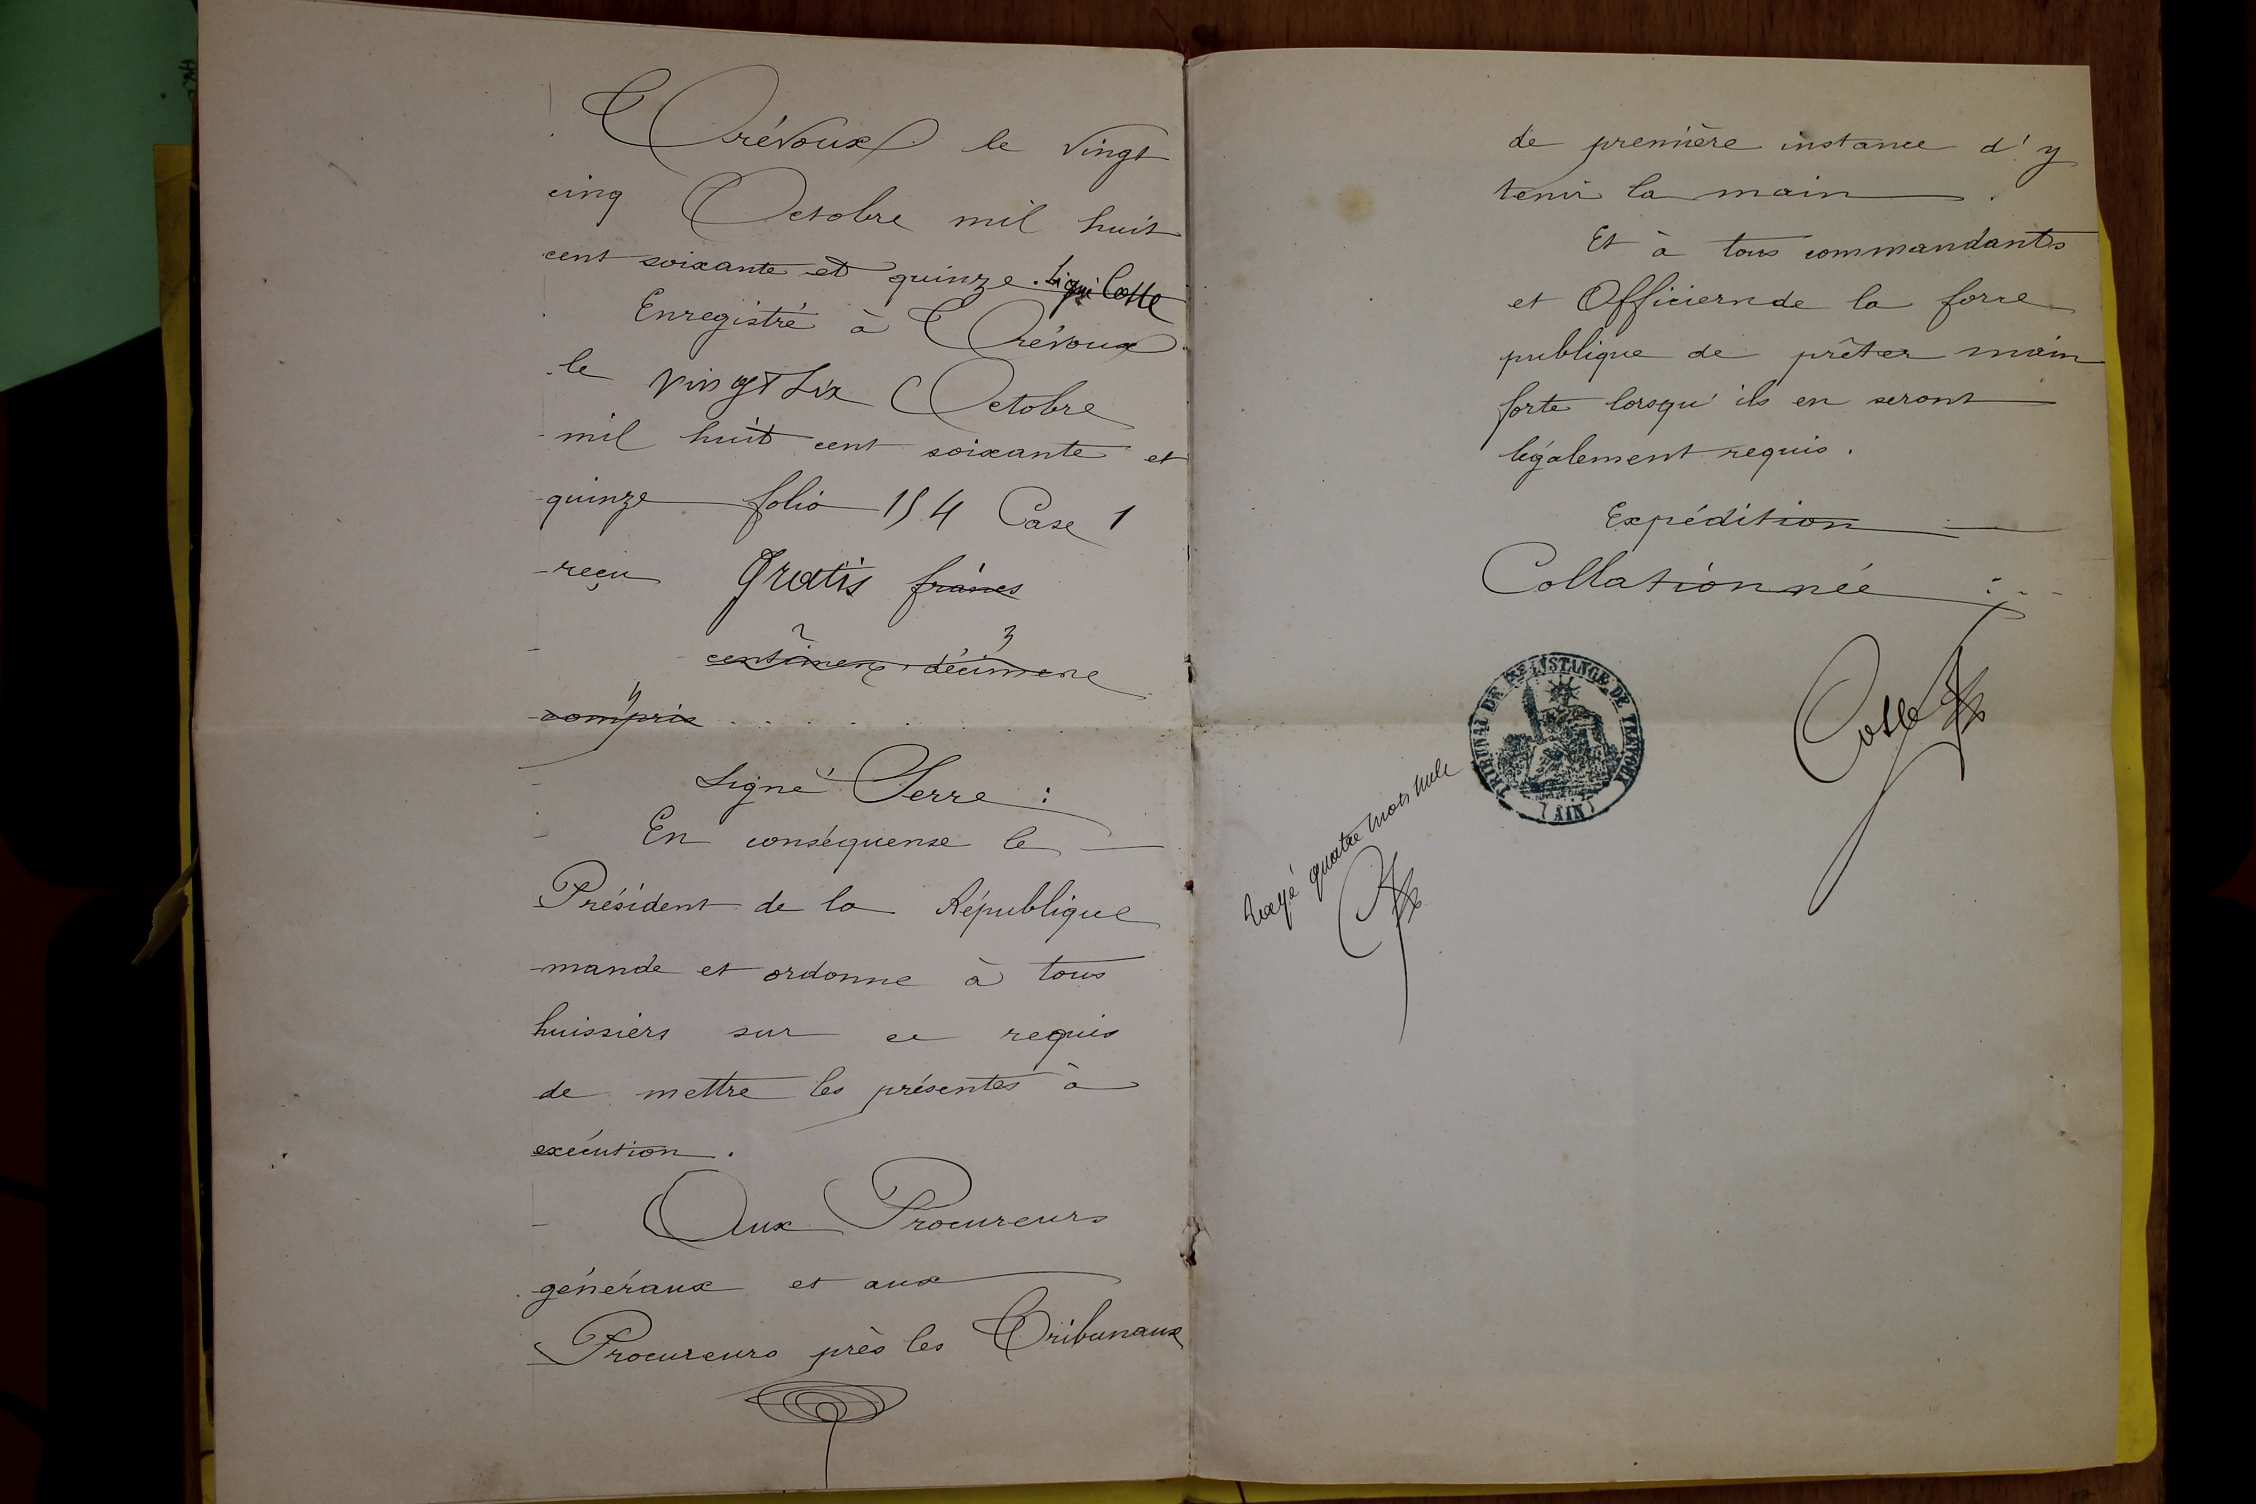 Trévoux le vingt
cinq Octobre mil huit
cent soixante et quinze. Signé Cotte
Enregistré à Trévoux
le vingt six Octobre
mil huit cent soixante et
quinze folio 154 Case 1
reçu Gratis francs
centimes, décimes
compris
Signé Serre :
En conséquense le
Président de la République
mande et ordonne à tous
huissiers sur ce requis
de mettre les présentes à
exécution.
Aux Procureurs
généraux et aux
Procureurs près les Tribunaux
de première instance d'y
tenir la main
Et à tous commandants
et Officiers de la force
publique de prêter main
forte lorsqu'ils en seront
légalement requis.
Expédition
Collationnée :
TRIBUNAL DE 1RE INSTANCE DE TREVOUX
(AIN)
Rayé quatre mots nuls